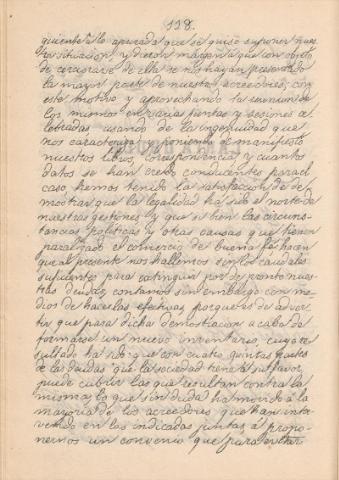 128.
quiente á lo apurada que se quiso suponer nues-
tra situacion, y dieron margen á que con objeto
de cerciorarse de ella se nos hayan presentado
la mayor parte de nuestros acreedores; con
este motivo y aprovechando la reunion de
los mismos en varias juntas y sesiones ce-
lebradas, usando de la ingenuidad que
nos caracteriza y poniendo de manifiesto
nuestros libros, correspondencia, y cuantos
datos se han creido conducentes para el
caso, hemos tenido la satisfaccion de de-
mostrar que la legalidad ha sido el norte de
nuestras gestiones y que si bien las circuns-
tancias políticas y otras causas que tienen
paralizado el comercio de buena fé, hacen
que al presente nos hallemos sin los caudales
suficientes para extinguir por de pronto nues-
tras deudas, contamos sin embargo con me-
dios de hacerlas efectivas, porque es de adver-
tir que para dicha demostracion acaba de
formarse un nuevo inventario, cuyo re-
sultado ha sido que con cuatro quintas partes
de las deudas que la sociedad tiene á su favor,
puede cubrir las que resultan contra la
misma, lo que sin duda ha movido á la
mayoria de los acreedores que han inter-
venido en las indicadas juntas á propo-
nernos un convenio que para evitar